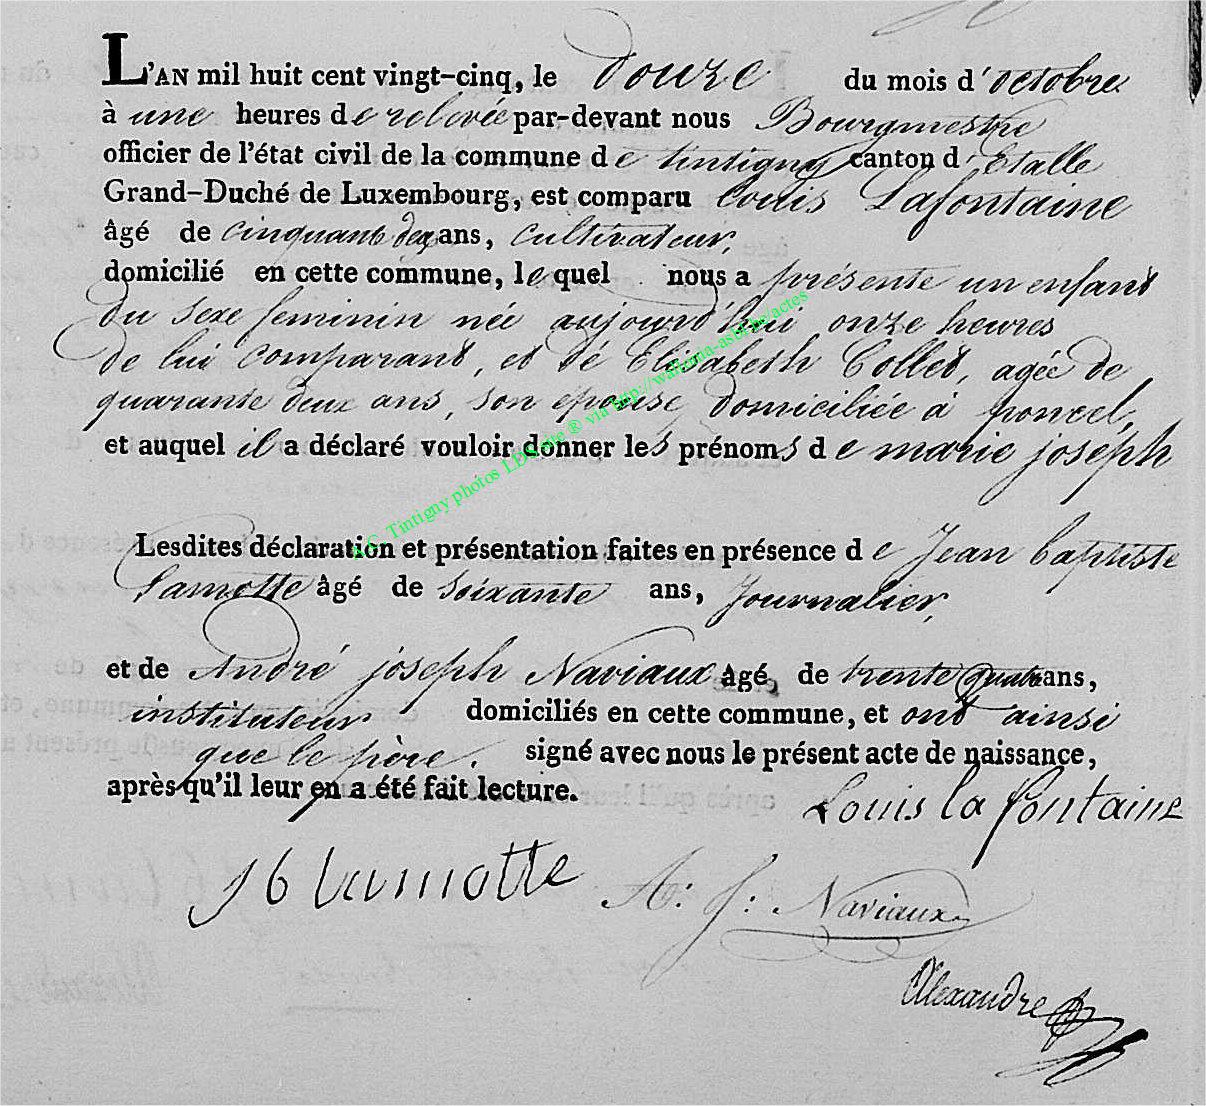 L'AN mil huit cent vingt-cinq, le douze du mois d'octobre
à une heures de relevée par-devant nous Bourgmestre
officier de l'état civil de la commune de tintigny canton d'Etalle
Grand-Duché de Luxembourg, est comparu Louis Lafontaine
âgé de cinquante deux ans, cultivateur,
domicilié en cette commune, lequel nous a présente un enfant
du sexe feminin née aujourd'hui onze heures
de lui comparant, et dé Elisabeth Collet, agée de
quarante deux ans, son epouse, domiciliée à poncel,
et auquel il a déclaré vouloir donner les prénoms de marie joseph
Lesdites déclaration et présentation faites en présence de Jean baptiste
Lamotte âgé de soixante ans, Journalier,
et de André joseph Naviaux âgé de trente quatre ans,
instituteur domiciliés en cette commune, et ont ainsi
que le père. signé avec nous le présent acte de naissance,
après qu'il leur en a été fait lecture.
Louis la fontaine
J b lamotte A: J: Naviaux
Alexandre
A.G. Tintigny photos LDelaite ® via http://wallonia-asbl.be/actes